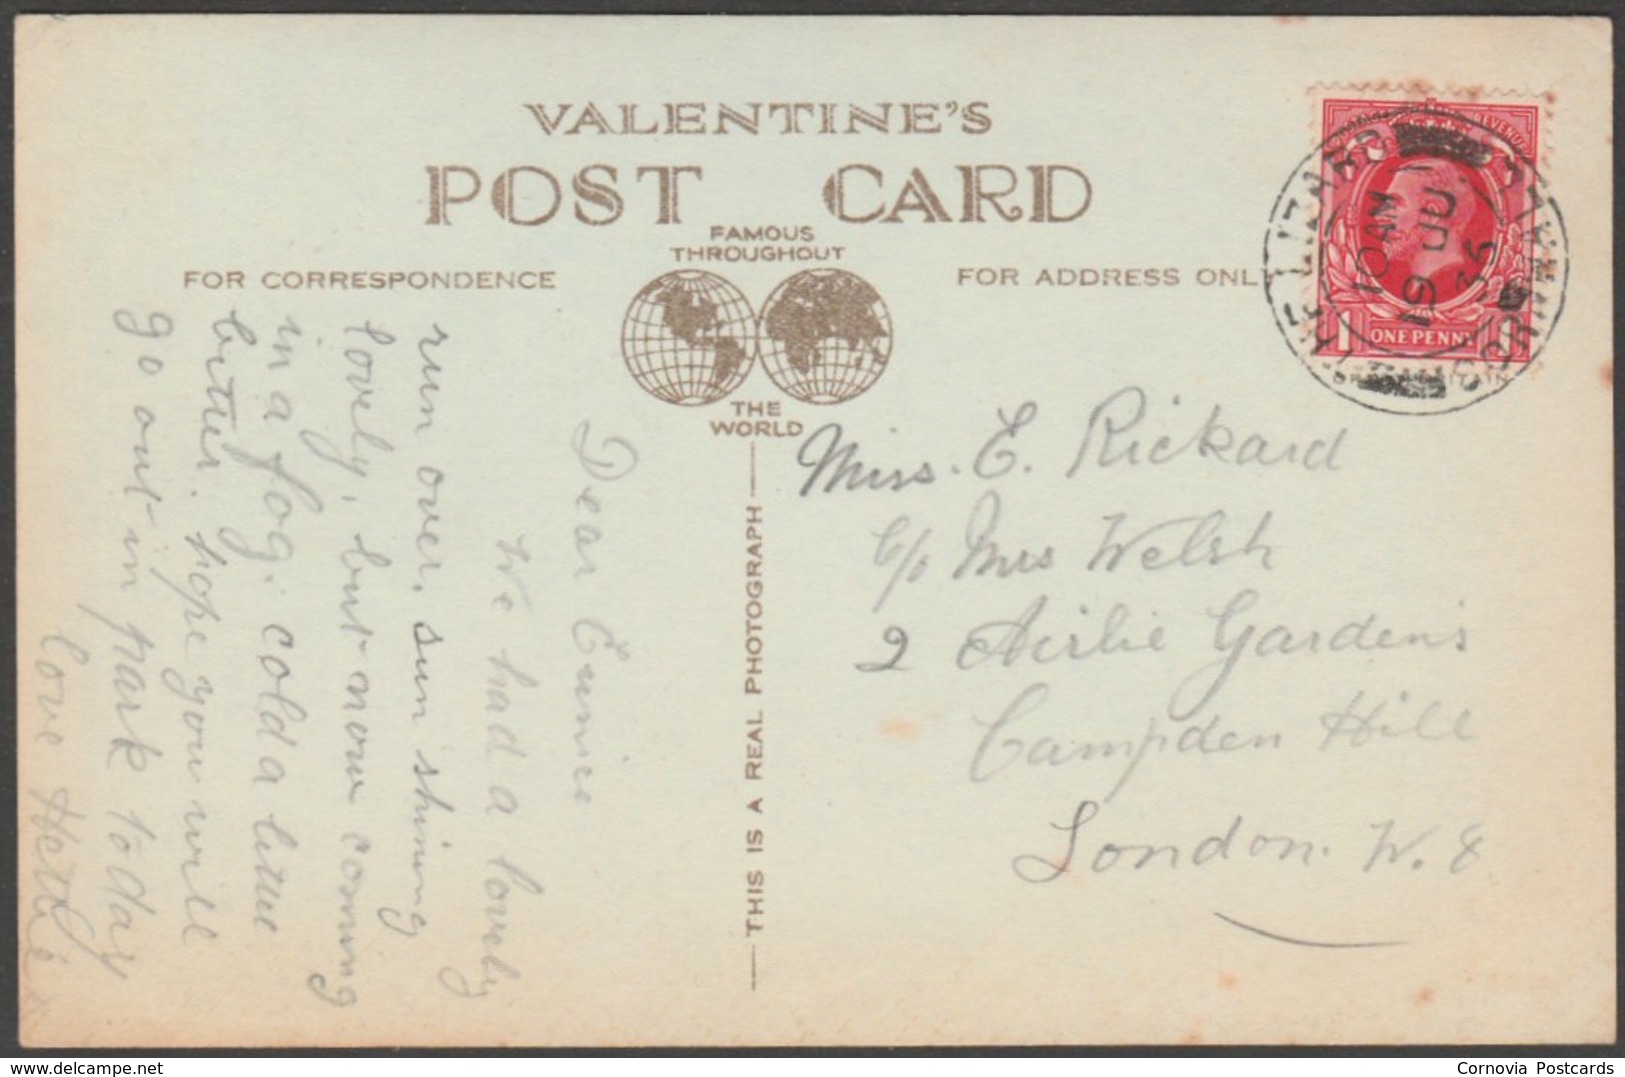 VALENTINE'S
POST CARD
FAMOUS
THROUGHOUT
THE
WORLD
FOR CORRESPONDENCE
FOR ADDRESS ONLY
THIS IS A REAL PHOTOGRAPH
Dear Eunice
We had a lovely
run over, sun shining
lovely, but now coming
in a fog. cold a
bitter. hope you will
go out in park today
love Hettie x
Miss. E. Rickard
c/o Mrs Welsh
2 Airlie Gardens
Campden Hill
London. W. 8
REVENUE
1 ONE PENNY
THE LIZARD
10 AM
19 JU
35
CORNWALL
Cornovia Postcards